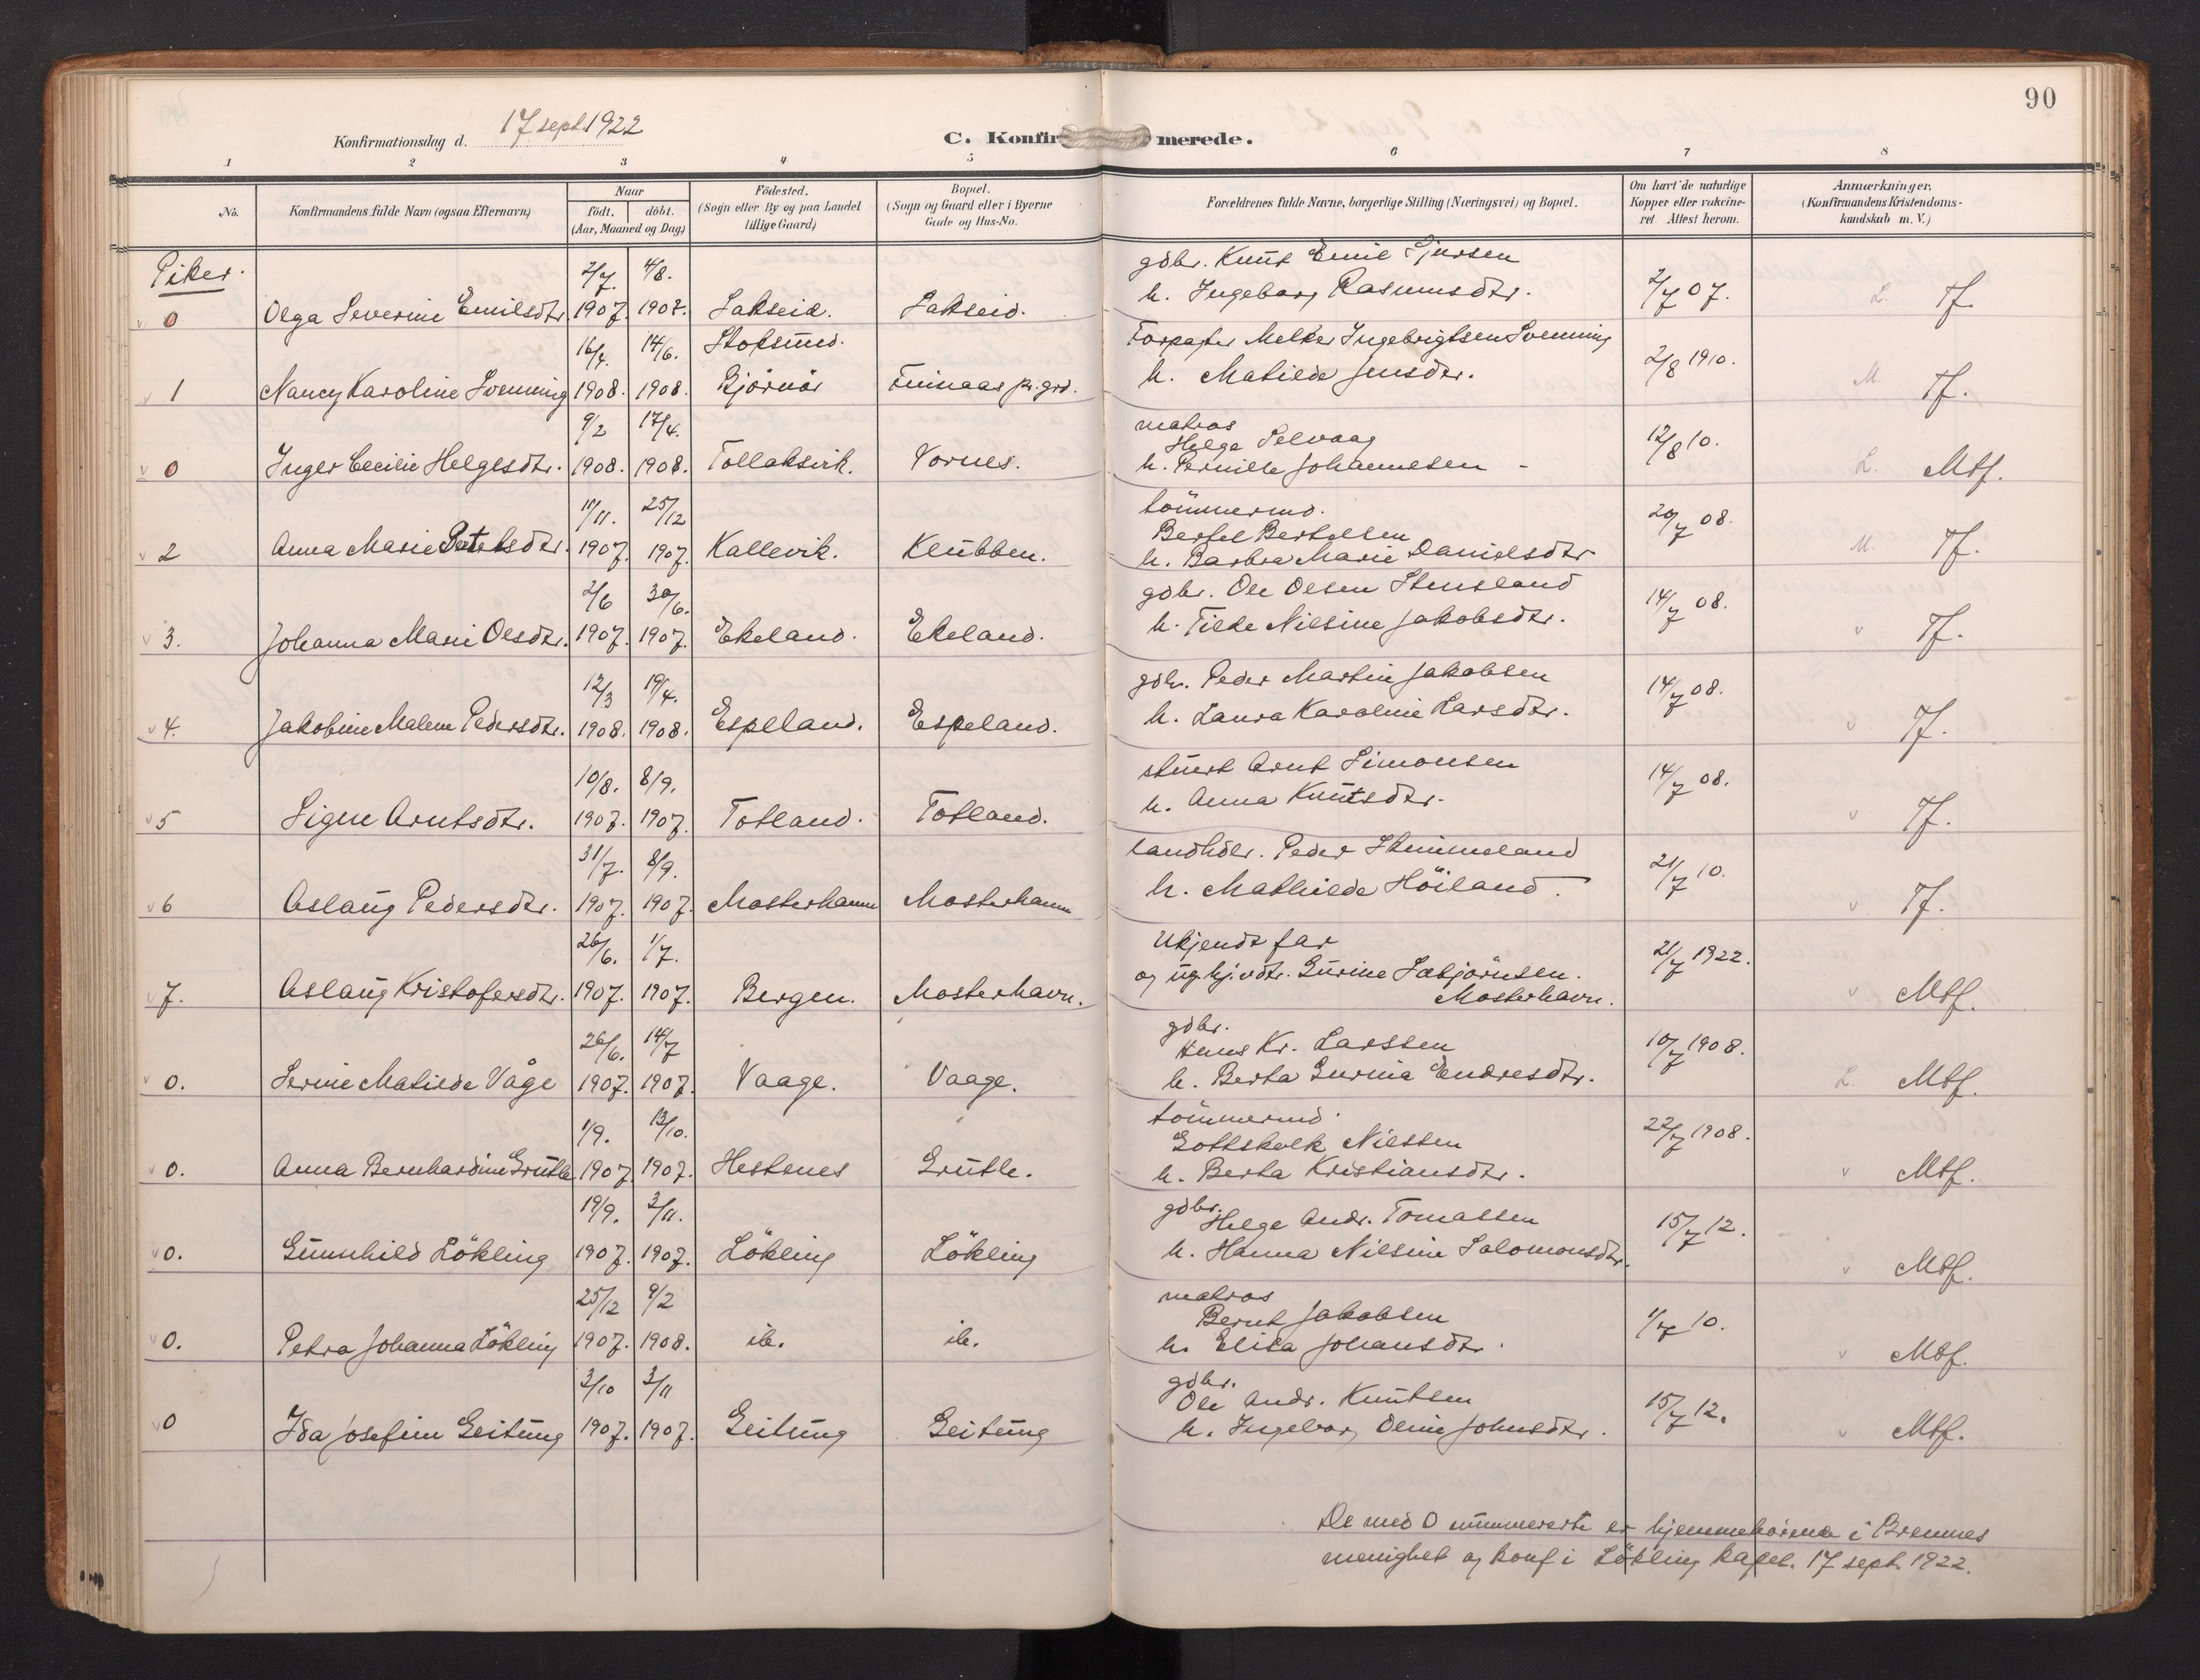 90
Konfirmationsdag d. 17 sept. 1922
C. Konfir merede.
1 2 3 4 5 6 7 8
No. Konfirmandens fulde Navn (ogsaa Efternavn) Naar födt. döbt. (Aar, Maaned og Dag) Födested. (Sogn eller By og paa Landet tillige Gaard) Bopæl. (Sogn og Gaard eller i Byerne Gade og Hus-No. Forældrenes fulde Navne, borgerlige Stilling (Næringsvei) og Bopæl. Om havt de naturlige Kopper eller vakcineret Attest herom. Anmærkninger. (Konfirmandens Kristendomskundskab m. V.)
Piker. 2/7. 4/8. gdbr. Knut Emil Sjursen
0 Olga Severine Emilsdtr. 1907. 1907. Sakseid. Sakseid. h. Ingeborg Rasmusdtr. 2/7 07. L. Tf.
16/4. 14/6. Stoksund. Forpagter Melker Ingebrigtsen Svenning
1 Nancy Karoline Svenning 1908. 1908. Björnör Finnaas pr. grd. h. Matilde Jensdtr. 2/8 1910. M. Tf.
9/2 17/4. matros
Helge Selvaag
0 Inger Cecilie Helgesdtr. 1908. 1908. Tollaksvik. Vornes. h. Pernille Johannesen 12/8 10. L. Mtf.
11/11. 25/12 tömmermd.
Bertel Bertelsen
2 Anna Marie 1907. 1907. Kallevik. Klubben. h. Barbra Marie Danielsdtr 20/7 08. M. Tf.
2/6 30/6. gdbr. Ole Olsen Stensland
3. Johanna Marie Olsdtr. 1907. 1907. Ekeland. Ekeland. h. Tilde Nilsine Jakobsdtr. 14/7 08. " Tf.
12/3 19/4. gdbr. Peder Martin Jakobsen
4. Jakobine Malene Pedersdtr. 1908. 1908. Espeland. Espeland. h. Laura Karoline Larsdtr. 14/7 08. " Tf.
10/8. 8/9. stuert Arnt Simonsen
5 Signe Arntsdtr. 1907. 1907. Totland. Totland. h. Anna Knutsdtr. 14/7 08. " Tf.
31/7. 8/9. landhdlr. Peder Stimmeland
6 Aslaug Pedersdtr. 1907. 1907. Mosterhamn Mosterhamn h. Mathilde Höiland. 21/7 10. " Tf.
26/6. 1/7. Ukjendt far
7. Aslaug Kristofersdtr. 1907. 1907. Bergen. Mosterhavn. og ug. hj.vdtr. Gurine Sæbjörnsen. Mosterhavn. 21/7 1922. " Mtf.
26/6. 14/7 gdbr.
Hans Kr. Larssen
0. Serine Matilde Våge 1907. 1907. Vaage. Vaage. h. Berta Gurina Endresdtr. 10/7 1908. L. Mtf.
1/9. 13/10. tömmermd.
Gottskalk Nilssen
0. Anna Bernhardine Grutle 1907. 1907. Hestenes Grutle. h. Berta Kristiansdtr. 22/7 1908. " Mtf.
19/9. 3/11. gdbr.
Helge Andr. Tomassen
0. Gunnhild Lökling 1907. 1907. Lökling Lökling h. Hanna Nilsine Salomonsdtr. 15/7 12. " Mtf.
25/12 9/2 matros
Bernt Jakobsen
0. Petra Johanna Lökling 1907. 1908. ib. ib. h. Elisa Johansdtr. 1/7 10. " Mtf.
3/10 3/11 gdbr.
Ole Andr. Knutsen
0 Ida Josefine Geitung 1907. 1907. Geitung Geitung h. Ingeborg Oline Johnsdtr. 15/7 12. " Mtf.
De med 0 nummererte er hjemmehörende i Bremnes
menighet og konf i Lökling kapel. 17 sept. 1922.